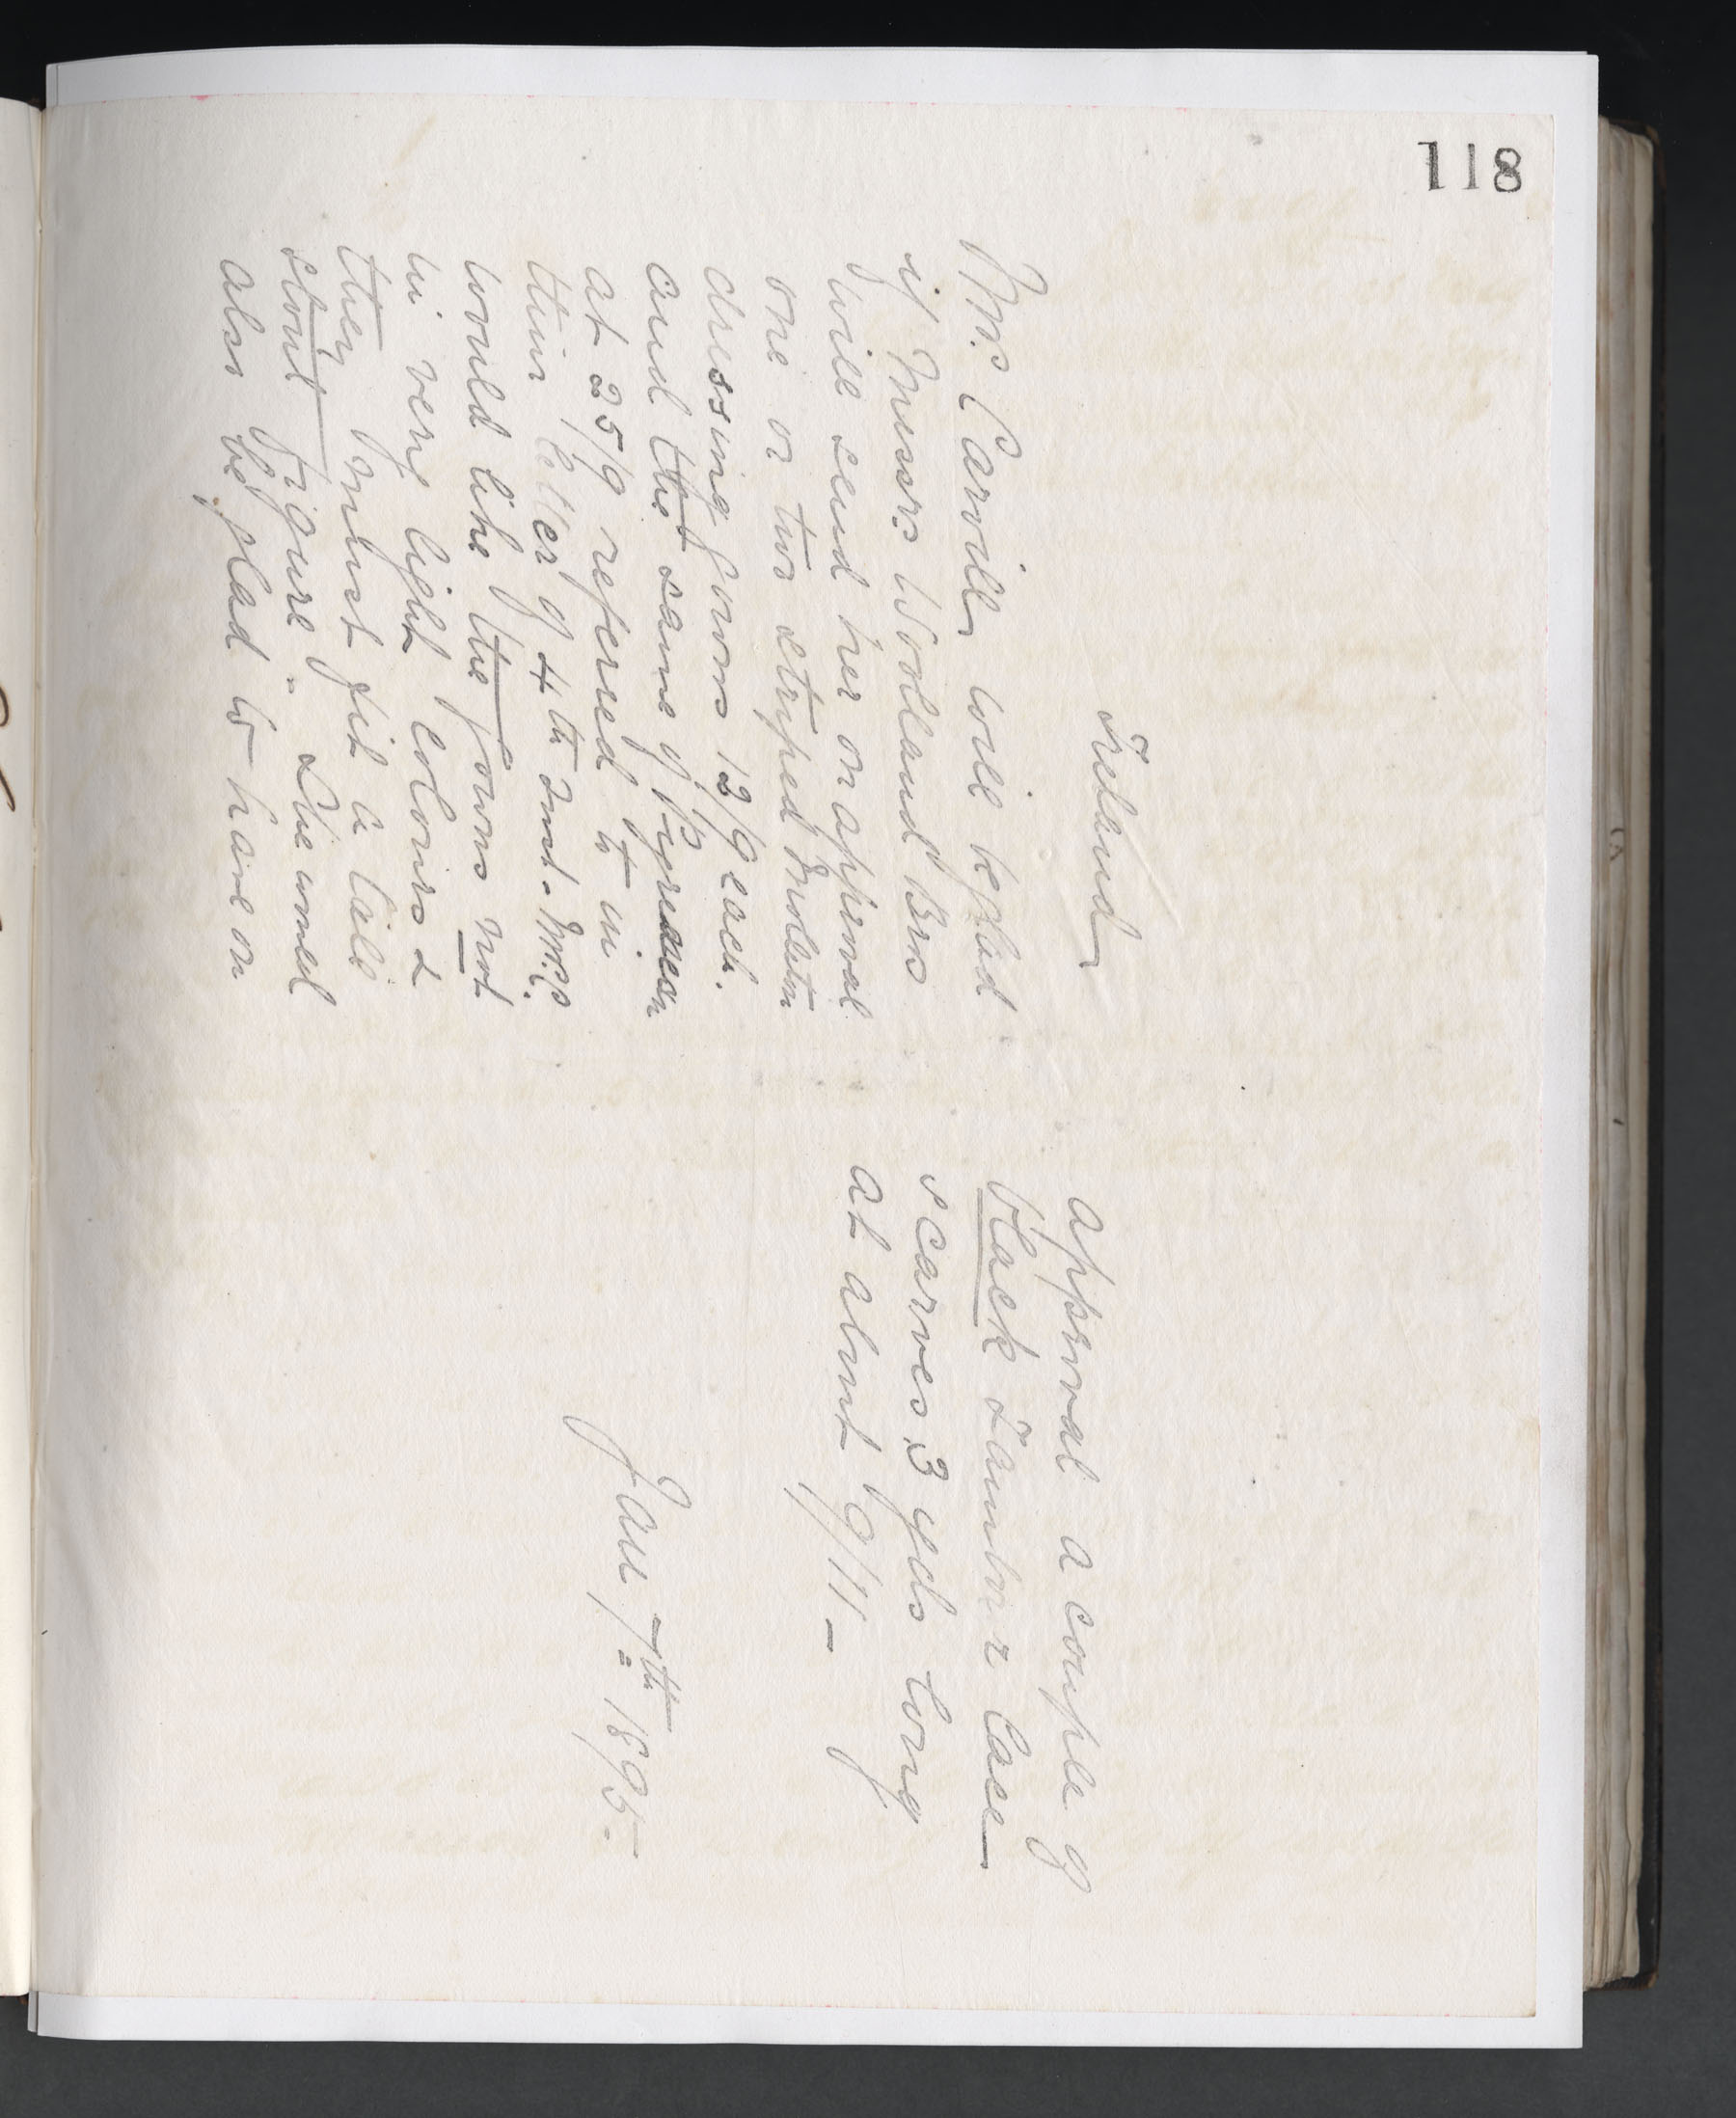 118
Ireland
Mrs Carvill will be glad
if Messrs Woolland Bros
will send her on approval
one or two striped Moleton
dressing gowns 12/9 each.
and the same of Pyrenean
at 25/9 referred to in
their letter of 4th Inst. Mrs C.
would like the gowns not
in very light colours &
they must fit a tall
stout figure. She would
also be glad to have on
approval a couple of
black Tambour lace
scarves 3 yds long
at about 9/11 -
Jan 7th 1895 -